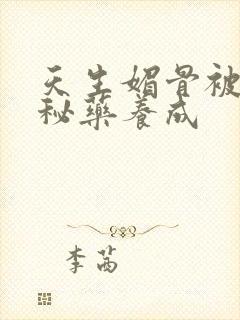 天生媚骨被
秘药养成
李茜